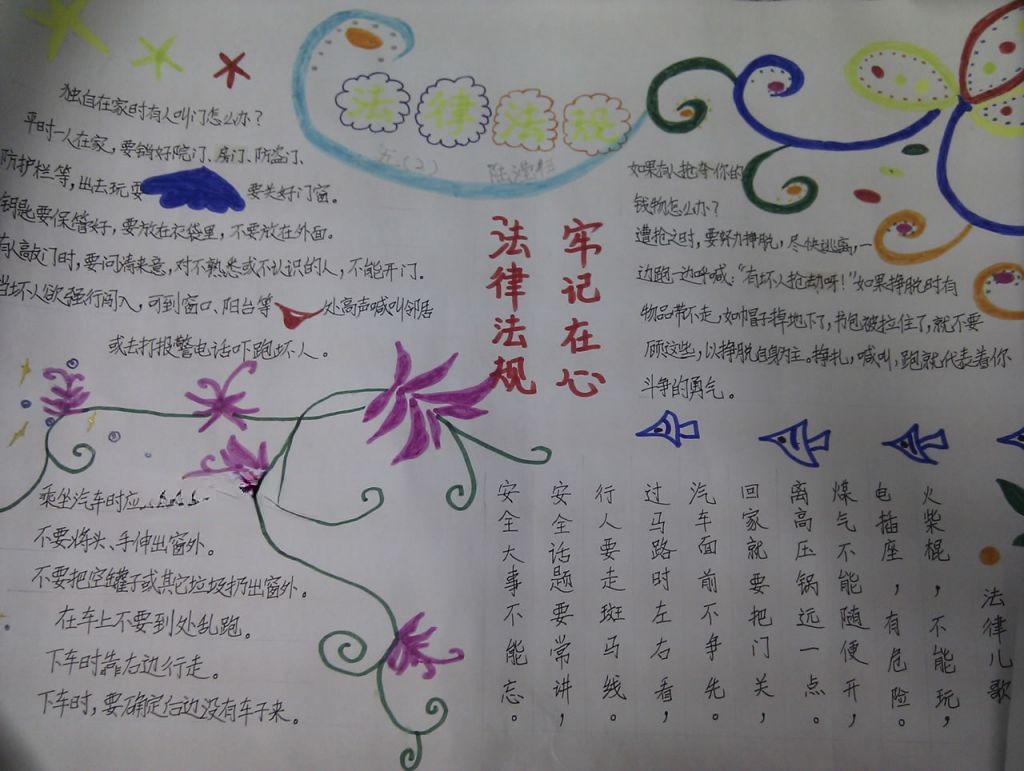 法律法规
五(2)
独自在家时有人叫门怎么办?
平时一人在家,要锁好院门、房门、防盗门、
防护栏等,出去玩耍 要关好门窗。
钥匙要保管好,要放在衣袋里,不要放在外面。
有人敲门时,要问清来意,对不熟悉或不认识的人,不能开门。
当坏人欲强行闯入,可到窗口、阳台等 处高声喊叫邻居
或去打报警电话吓跑坏人。
牢记在心
法律法规
如果有人抢夺你的
钱物怎么办?
遭抢之时,要努力挣脱,尽快逃离,一
边跑一边呼喊:“有坏人抢劫呀!”如果挣脱时有
物品带不走,如帽子掉地下了,书包被拉住了,就不要
顾这些,以挣脱自身为主。挣扎,喊叫,跑就代表着你
斗争的勇气。
乘坐汽车时应......
不要将头、手伸出窗外。
不要把空罐子或其它垃圾扔出窗外。
在车上不要到处乱跑。
下车时靠右边行走。
下车时,要确定右边没有车子来。
法律儿歌
火柴棍,不能玩,
电插座,有危险。
煤气不能随便开,
离高压锅远一点。
回家就要把门关,
汽车面前不争先。
过马路时左右看,
行人要走斑马线。
安全话题要常讲,
安全大事不能忘。